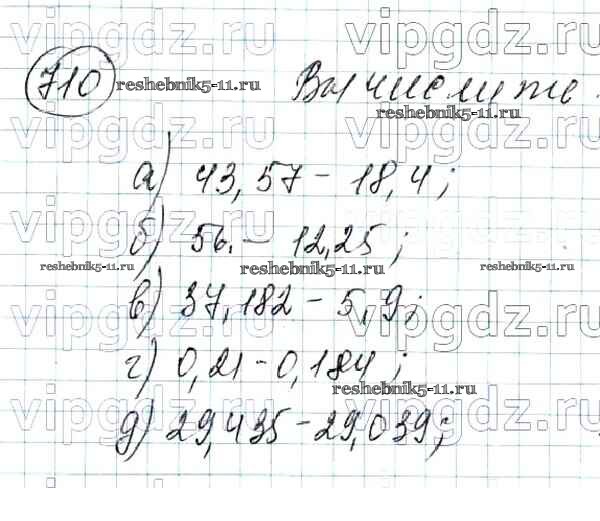 vipgdz.ru vipgdz.ru
710 reshebnik5-11.ru Вычислите
reshebnik5-11.ru
vipgdz.ru vipgdz.ru
а) 43,57 - 18,4;
vipgdz.ru vipgdz.ru
б) 56. - 12,25;
reshebnik5-11.ru reshebnik5-11.ru reshebnik5-11.ru
в) 37,182 - 5,9;
vipgdz.ru vipgdz.ru
г) 0,21 - 0,184;
reshebnik5-11.ru
vipgdz.ru vipgdz.ru
д) 29,435 - 29,039;